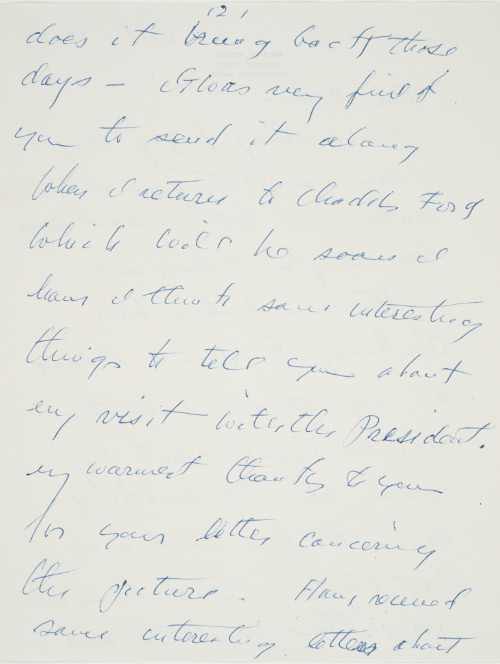 (2)
does it bring back those
days — It was very kind of
you to send it along
When I return to Chadds Ford
which will be soon I
have I think some interesting
things to tell you about
my visit with the President.
my warmest thanks to you
for your letter concerning
the picture. Have received
some interesting letters about